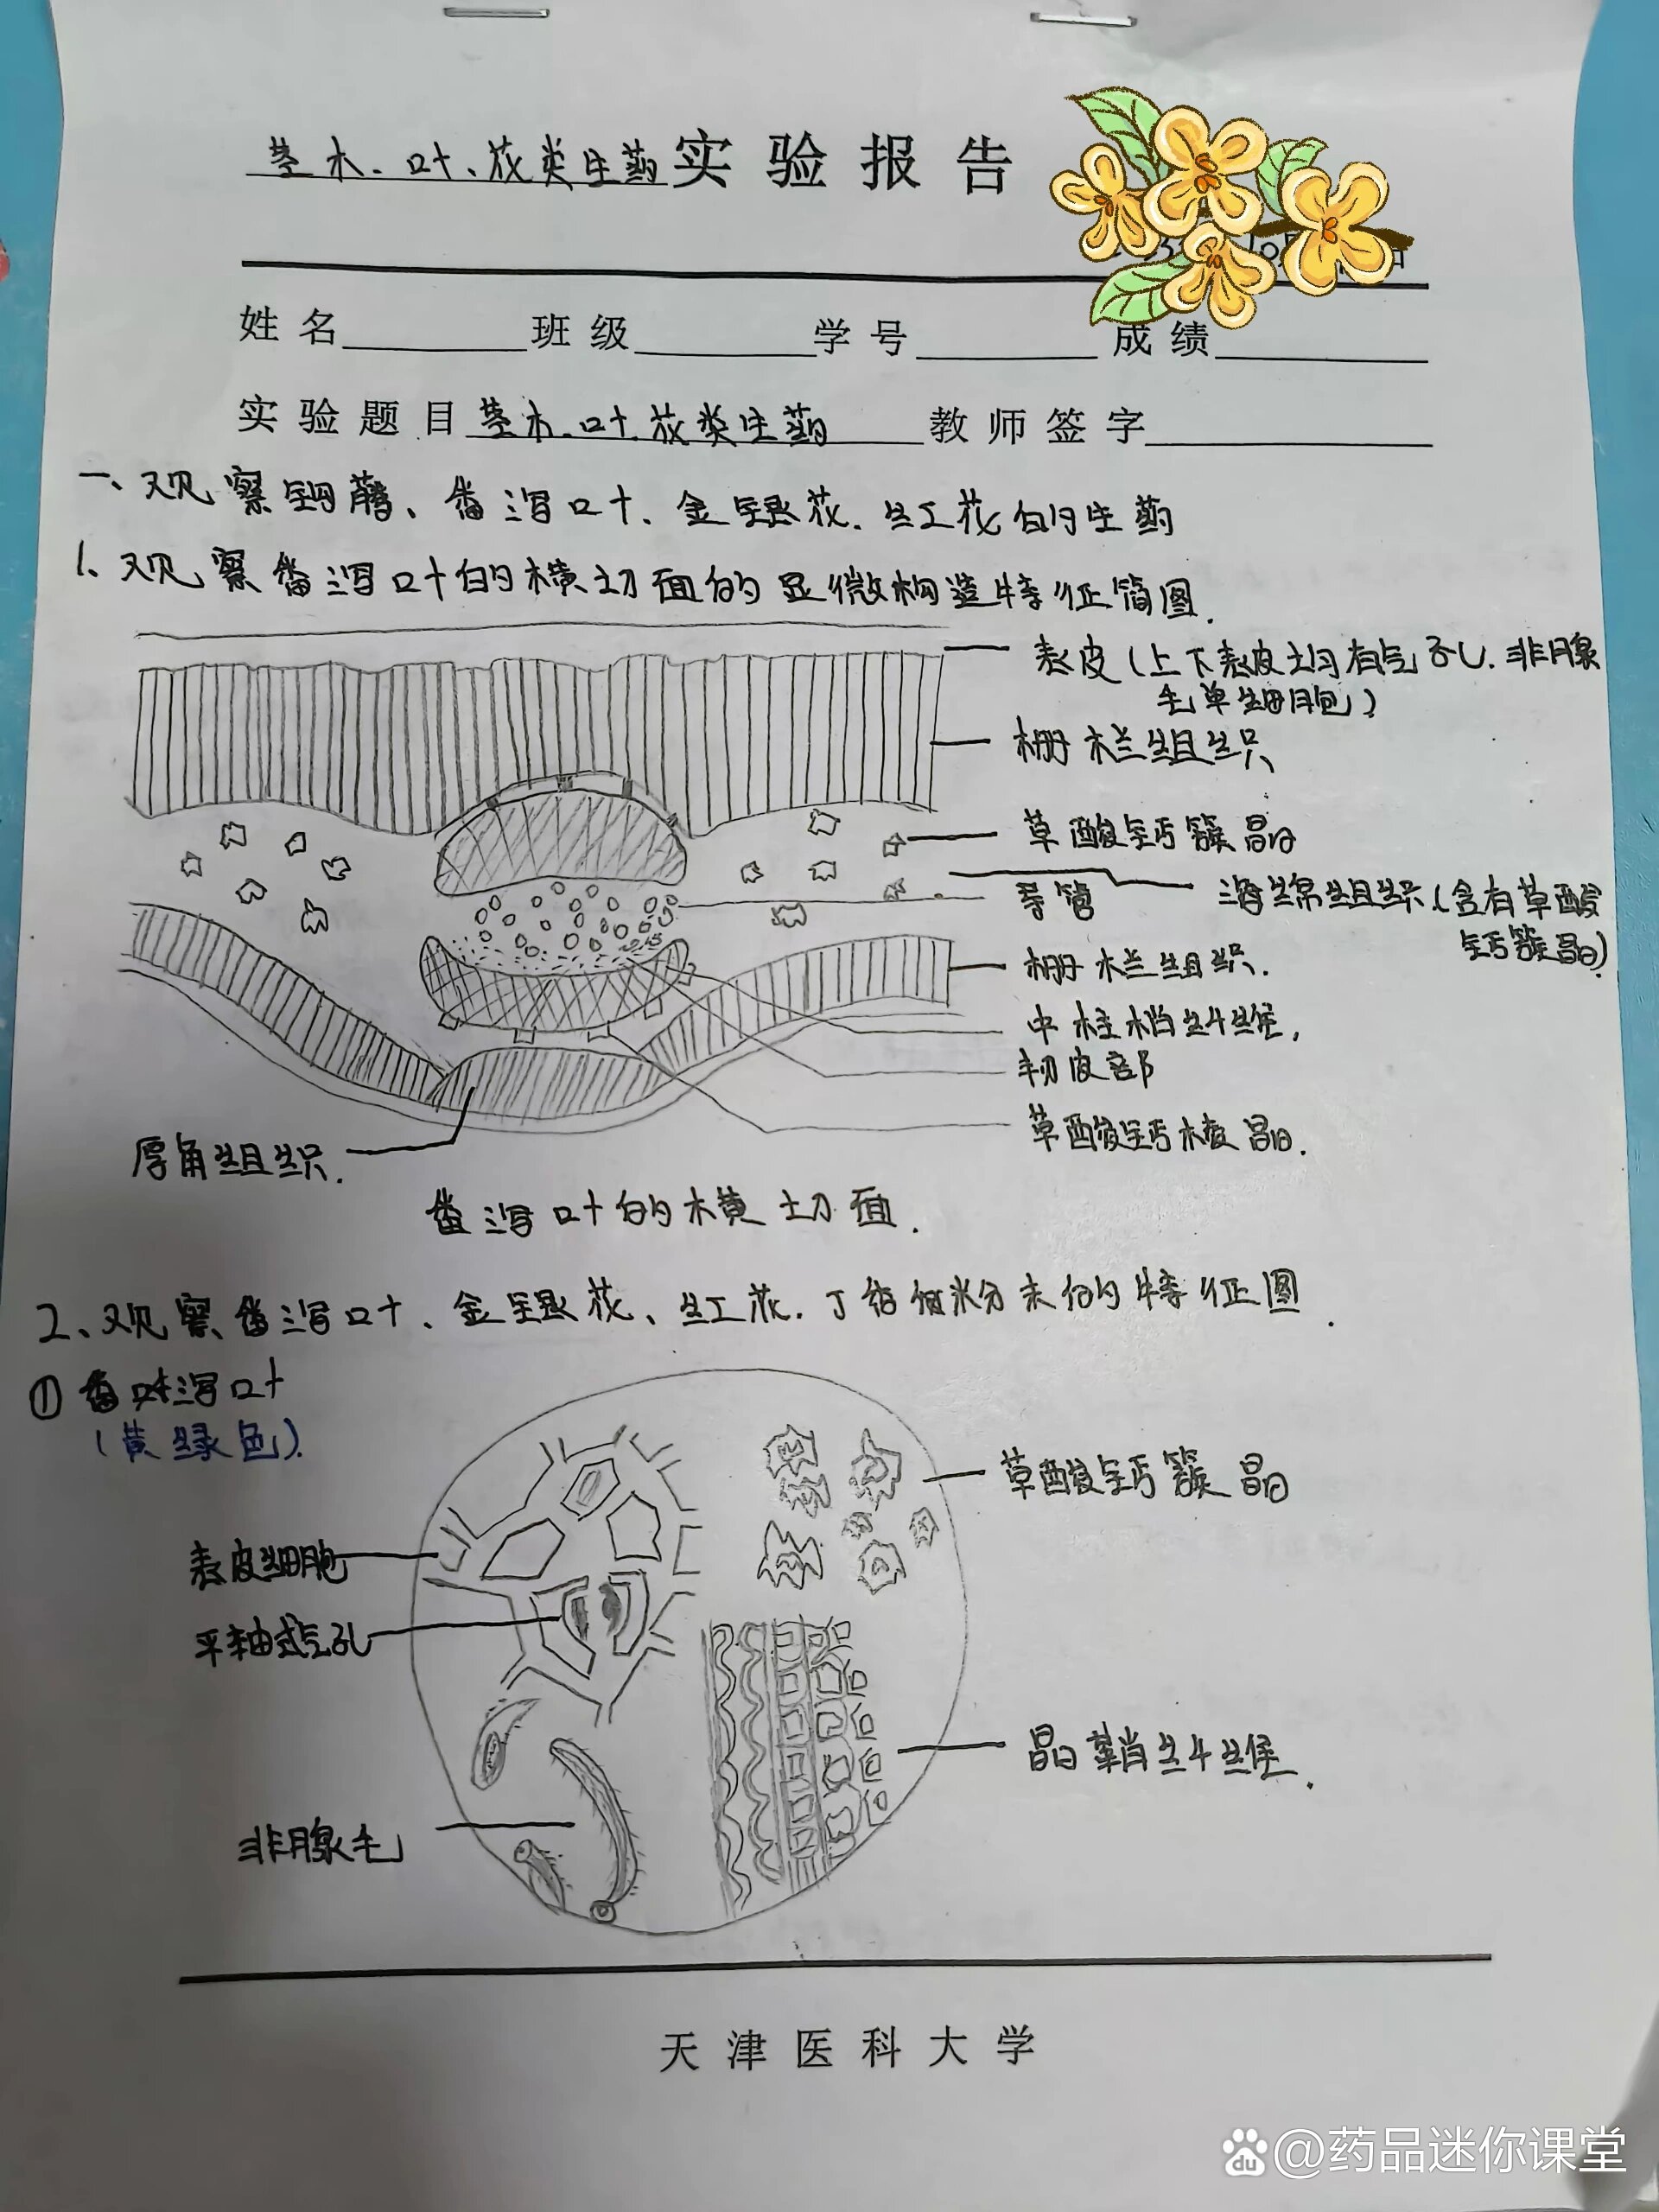 茎木、叶、花类生药实验报告
姓名 班级 学号 成绩
实验题目 茎木、叶、花类生药 教师签字
一、观察钩藤、番泻叶、金银花、红花的生药
1、观察番泻叶的横切面的显微构造特征简图.
表皮(上下表皮均有气孔.非腺
毛单细胞)
栅栏组织
草酸钙簇晶
导管
海绵组织(含有草酸
钙簇晶)
栅栏组织.
中柱鞘纤维.
韧皮部
草酸钙棱晶.
厚角组织.
番泻叶的横切面.
2、观察番泻叶、金银花、红花.丁香粉末的特征图.
① 番泻叶
(黄绿色).
草酸钙簇晶
表皮细胞
平轴式气孔
晶鞘纤维.
非腺毛
天津医科大学
du @药品迷你课堂